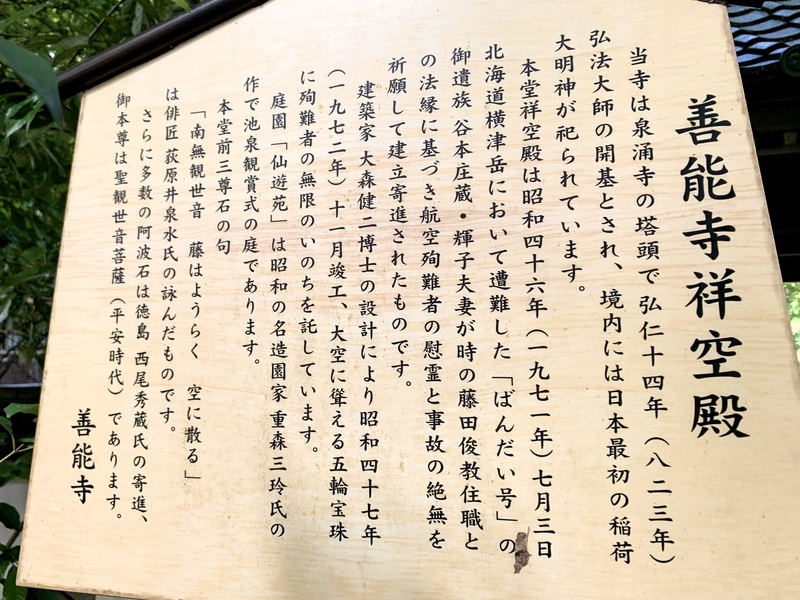 善能寺祥空殿
当寺は泉涌寺の塔頭で弘仁十四年（八二三年）
弘法大師の開基とされ、境内には日本最初の稲荷
大明神が祀られています。
本堂祥空殿は昭和四十六年（一九七一年）七月三日
北海道横津岳において遭難した「ばんだい号」の
御遺族 谷本庄蔵・輝子夫妻が時の藤田俊教住職と
の法縁に基づき航空殉難者の慰霊と事故の絶無を
祈願して建立寄進されたものです。
建築家 大森健二博士の設計により昭和四十七年
（一九七二年）十一月竣工、大空に聳える五輪宝珠
に殉難者の無限のいのちを託しています。
庭園「仙遊苑」は昭和の名造園家 重森三玲氏の
作で池泉観賞式の庭であります。
本堂前三尊石の句
「南無観世音 藤はようらく 空に散る」
は俳匠 荻原井泉水氏の詠んだものです。
さらに多数の阿波石は徳島 西尾秀蔵氏の寄進、
御本尊は聖観世音菩薩（平安時代）であります。
善能寺